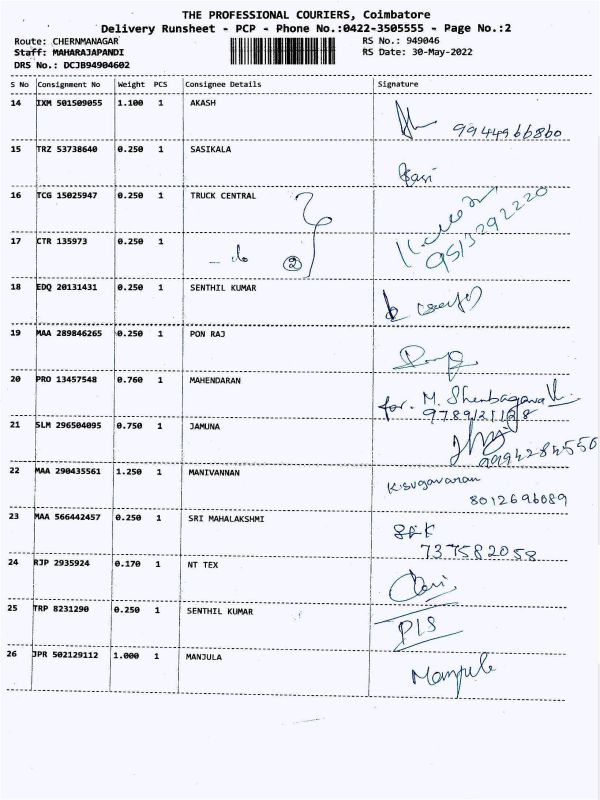 THE PROFESSIONAL COURIERS, Coimbatore
Delivery Runsheet - PCP - Phone No.:0422-3505555 - Page No.:2
Route: CHERNMANAGAR RS No.: 949046
Staff: MAHARAJAPANDI RS Date: 30-May-2022
DRS No.: DCJB94904602
S No Consignment No Weight PCS Consignee Details Signature
14 IXM 501509055 1.100 1 AKASH
9944966860
15 TRZ 53738640 0.250 1 SASIKALA
Sasi
16 TCG 15025947 0.250 1 TRUCK CENTRAL
9513292220
17 CTR 135973 0.250 1
- do 2
18 EDQ 20131431 0.250 1 SENTHIL KUMAR
19 MAA 289846265 0.250 1 PON RAJ
20 PRO 13457548 0.760 1 MAHENDARAN
for. M. Shenbagavalli
21 SLM 296504095 0.750 1 JAMUNA
9994284550
22 MAA 290435561 1.250 1 MANIVANNAN
K.sugavanan
8012696089
23 MAA 566442457 0.250 1 SRI MAHALAKSHMI
737582058
24 RJP 2935924 0.170 1 NT TEX
25 TRP 8231290 0.250 1 SENTHIL KUMAR
PLS
26 JPR 502129112 1.000 1 MANJULA
Manjula